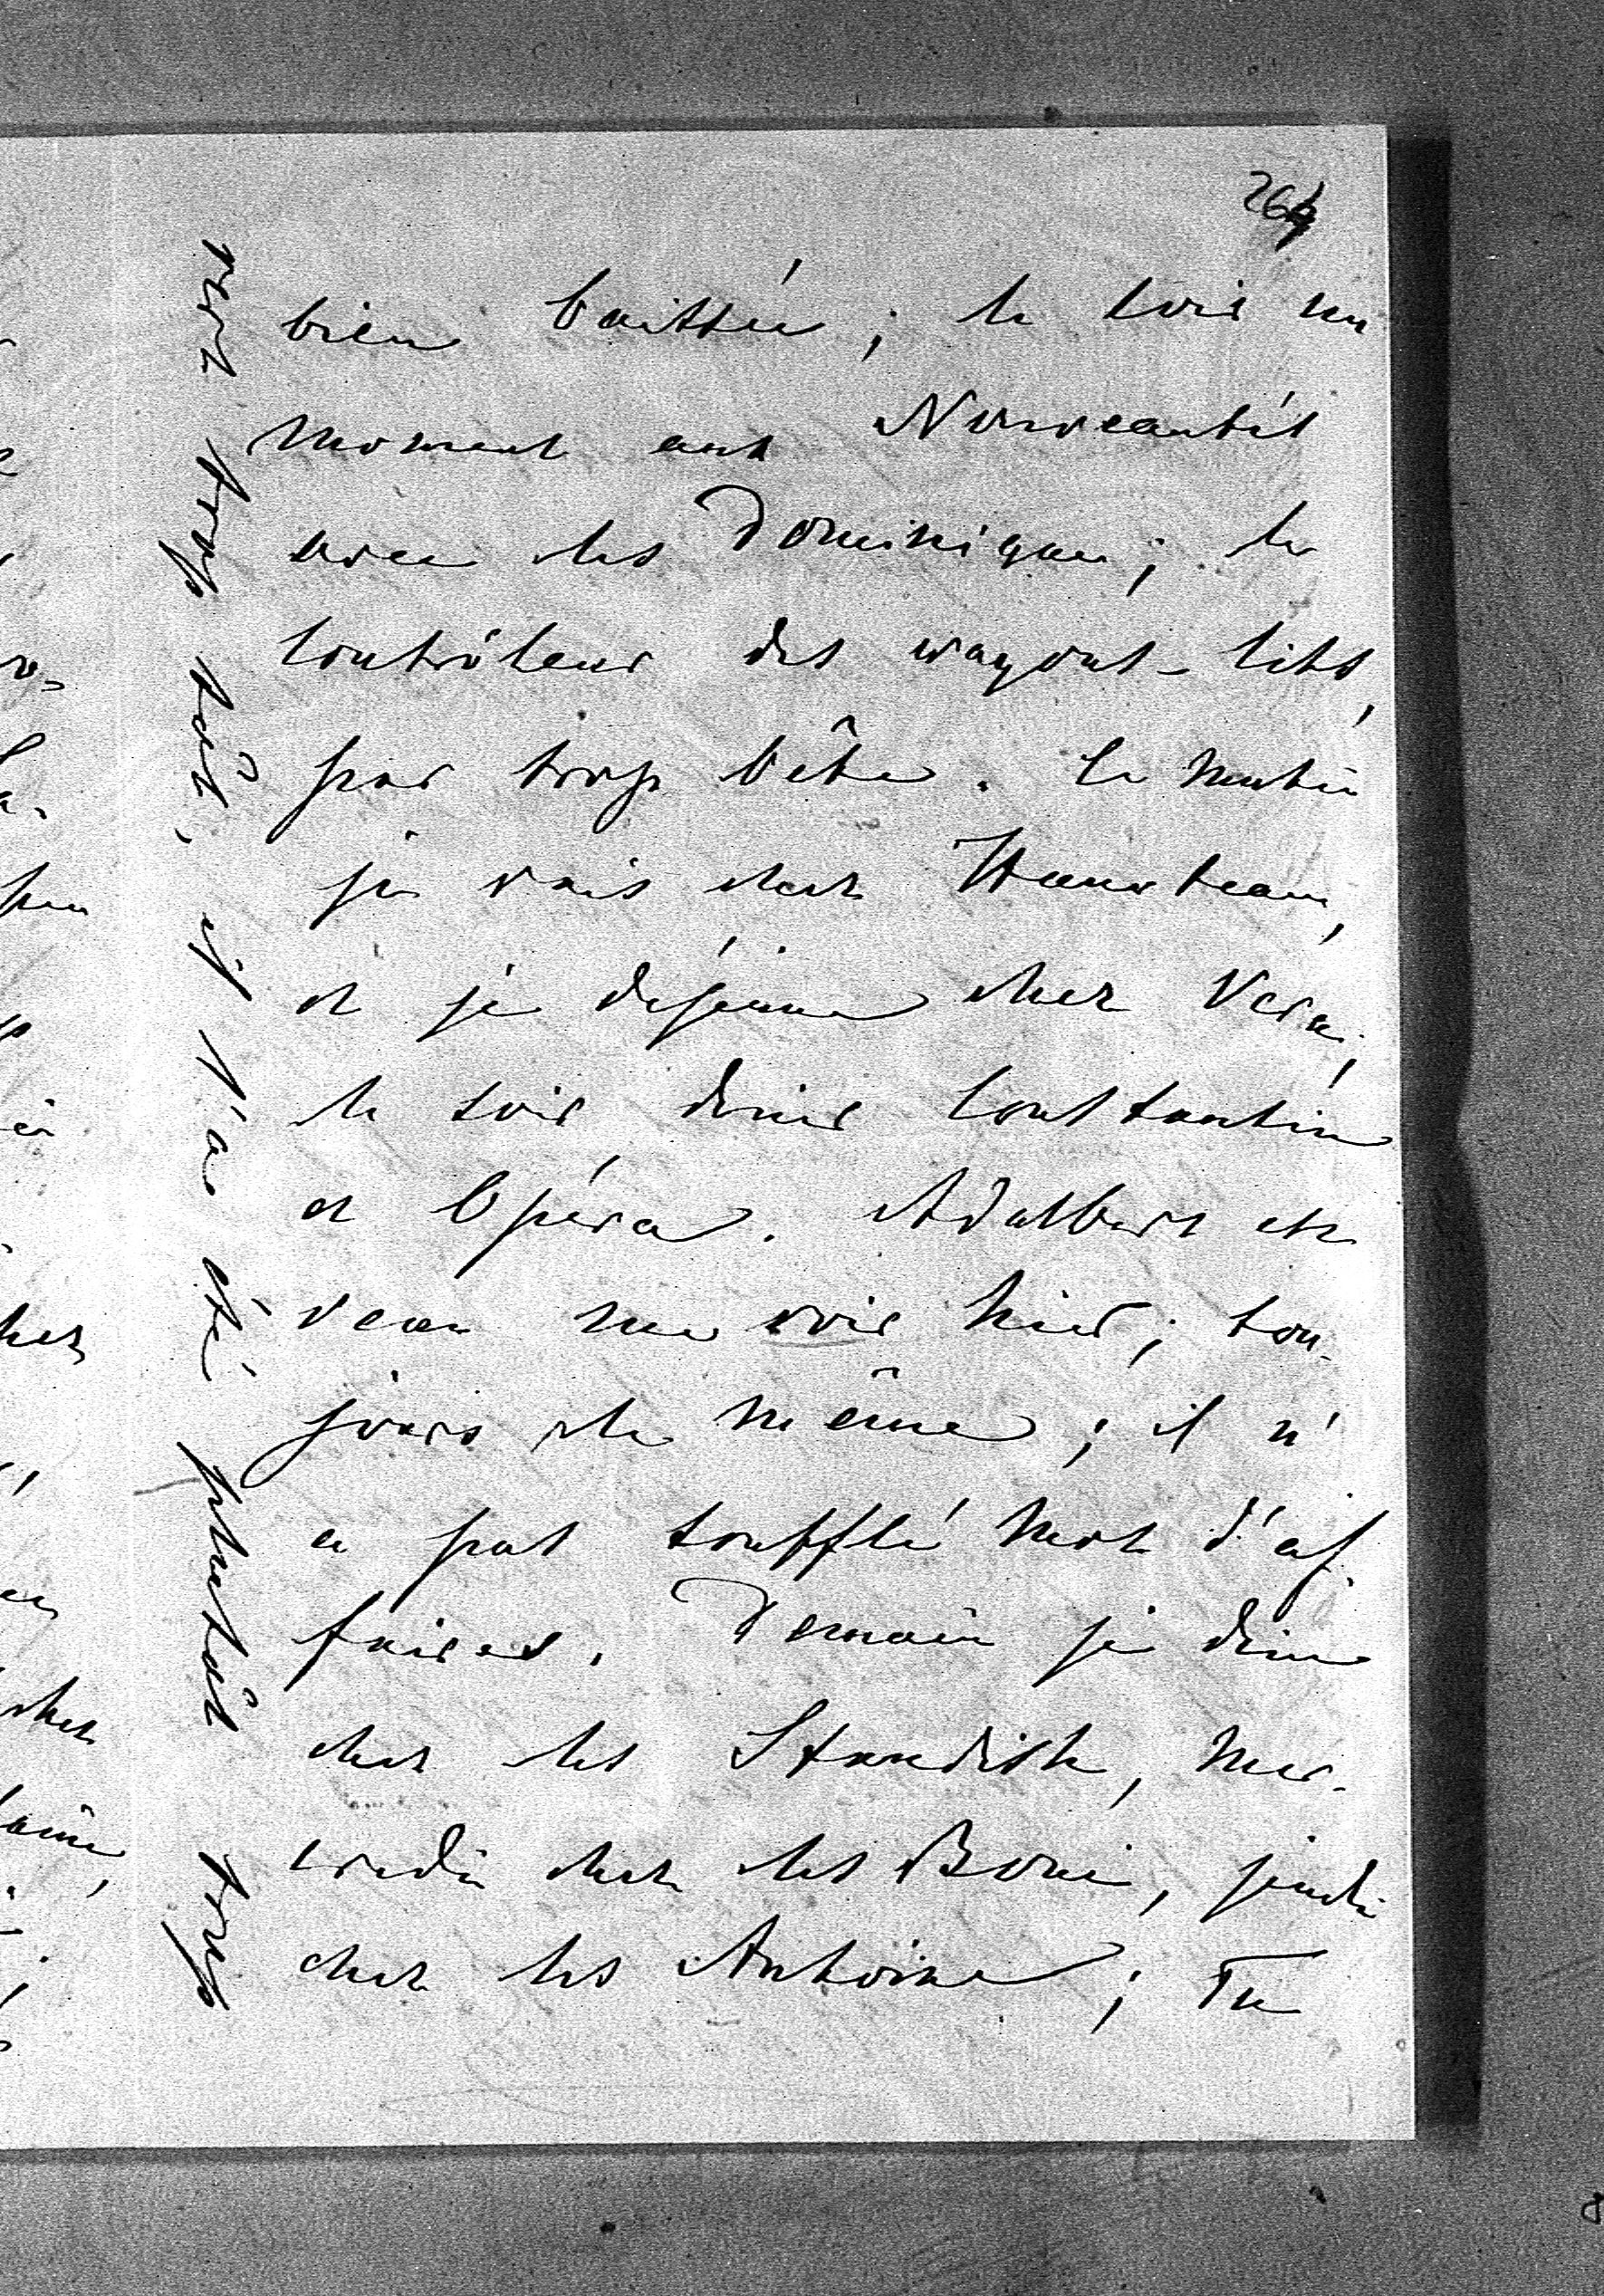 264
bien baissée ; le soir un
moment aux Nouveautés
avec les Dominique ; le
Contrôleur des wagons-lits,
par trop bête. Ce matin
je vais chez
et je déjeune chez
le soir dîner Constantin
et Opéra. Adalbert est
venu me voir hier ; tou-
jours le même ; il n'
a pas soufflé mot d'af-
faires. Demain je dîne
chez les Standish, mer-
credi chez les Boni, jeudi
chez les Antoine ; Tu
vois trop tôt, il n'a été plutôt trop